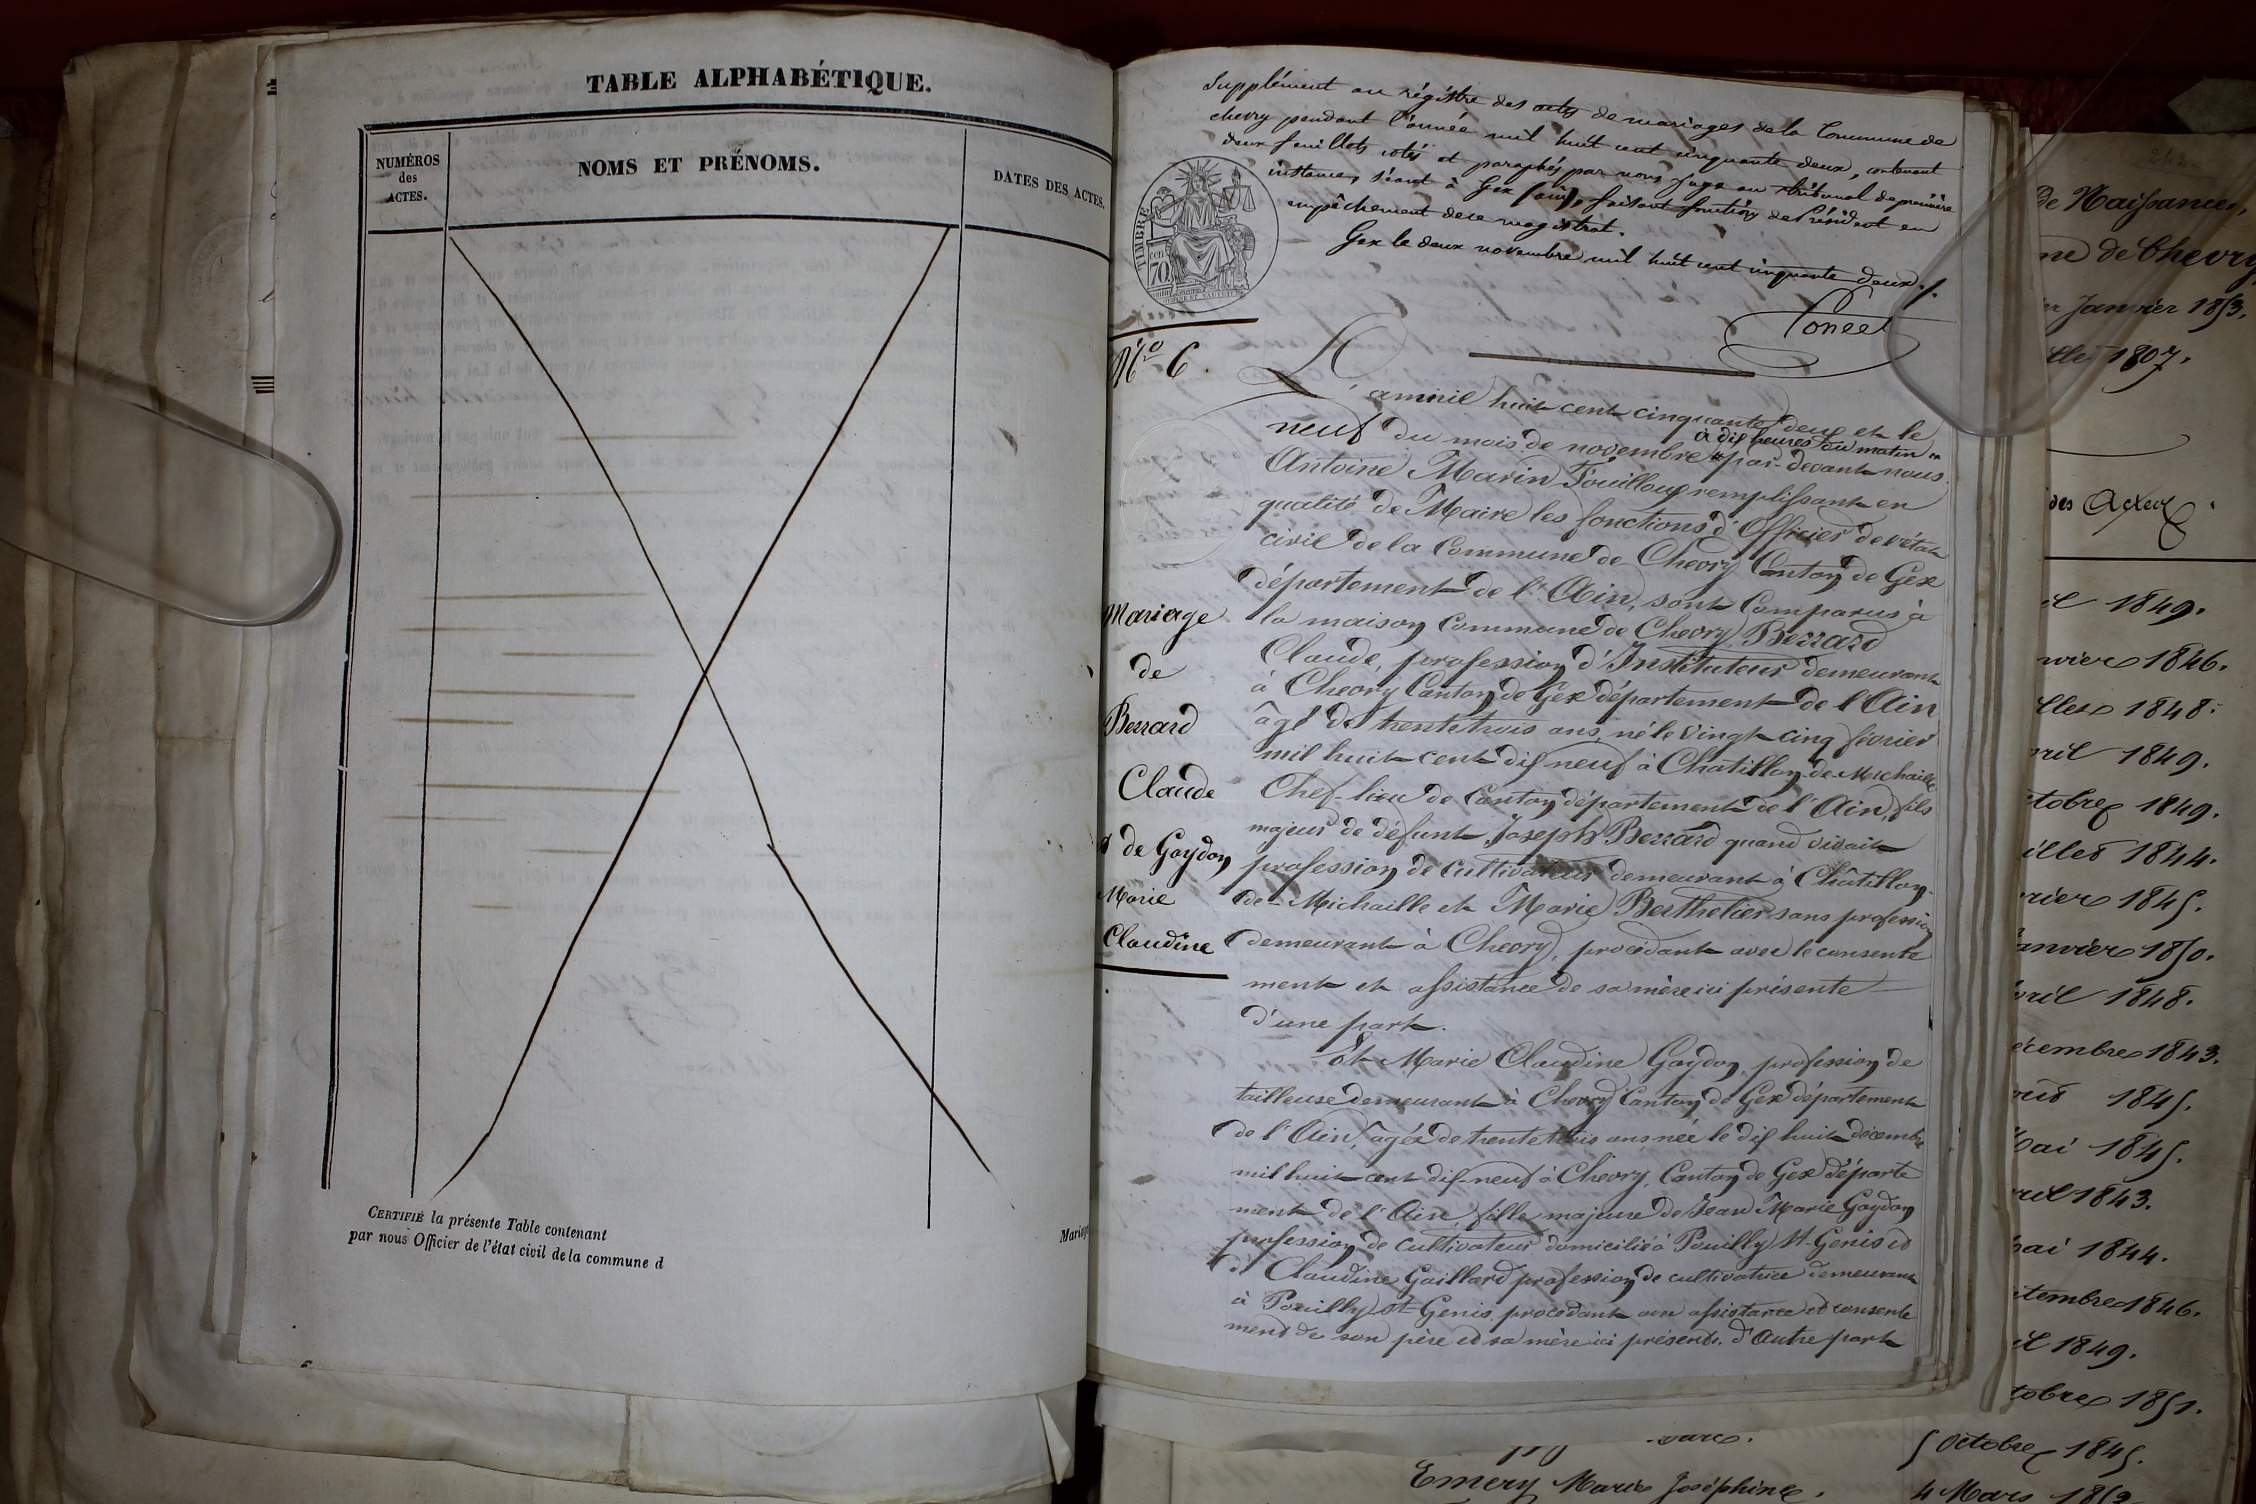 TABLE ALPHABÉTIQUE.
NUMÉROS
des
ACTES.
NOMS ET PRÉNOMS.
DATES DES ACTES.
CERTIFIÉ la présente Table contenant
par nous Officier de l'état civil de la commune d
Supplément au régistre des actes de mariages de la Commune de
chevry pendant l'année mil huit cent cinquante deux, contenant
deux feuillets cotés et paraphés par nous juge au tribunal de première
instance, séant à Gex (ain), faisant fonctions de Président en
empêchement de ce magistrat.
Gex le deux novembre mil huit cent cinquante deux./.
TIMBRE
70
No 6.
L'an mil huit cent cinquante deux et le
neuf du mois de novembre à dix heures du matin par-devant nous
Antoine Marin Fouilloux remplissant en
qualité de Maire les fonctions d'Officier de l'état
civil de la Commune de Chevry Canton de Gex
département de l'Ain, sont Comparus à
la maison Commune de Chevry, Berrard
Claude, profession d'Instituteur demeurant
à Chevry Canton de Gex département de l'Ain
âgé de trente trois ans, né le vingt cinq février
mil huit cent dix neuf à Chatillon-de-Michaille
Chef-lieu de Canton département de l'Ain, fils
majeur de défunt Joseph Berrard quand vivait
profession de Cultivateur demeurant à Châtillon-
de-Michaille et Marie Berthelier sans profession
demeurant à Chevry, procédant avec le consente
ment et assistance de sa mère ici présente
d'une part.
Et Marie Claudine Gaydon, profession de
tailleuse demeurant à Chevry Canton de Gex département
de l'Ain, agée de trente trois ans, née le dix huit décembre
mil huit cent dix-neuf à Chevry, Canton de Gex départe
ment de l'Ain, fille majeure de Jean Marie Gaydon
profession de cultivateur domicilié à Pouilly St Genis et
de Claudine Gaillard profession de cultivatrice demeurant
à Pouilly St-Genis procédant avec assistance et consente
ment de son père et sa mère ici présents. d'autre part
Mariage
de
Berrard
Claude
& de Gaydon
Marie
Claudine
de Naissances,
de Chevry
Janvier 1853.
1807.
des Actes
1849.
1846.
1848.
1849.
1849.
1844.
1845.
1850.
1848.
1843.
1845.
Mai 1845.
1843.
1844.
1846.
1849.
1851.
5 Octobre 1845.
Emery Marie Joséphine.
4 Mars